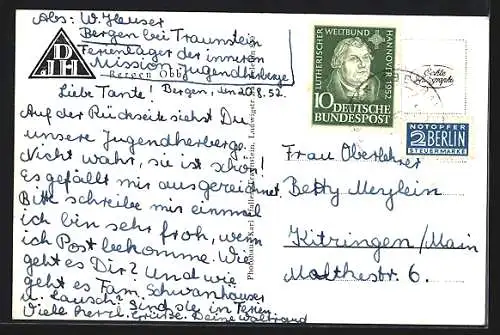 Abs: W. Heuser
Bergen bei Traunstein
Ferienlager der inneren
Mission Jugendherberge
DJH
Bergen Obb.
Liebe Tante! Bergen, den 20.8.52.
Auf der Rückseite siehst Du
unsere Jugendherberge.
Nicht wahr, sie ist schön!
Es gefällt mir ausgezeichnet.
Bitte schreibe mir einmal
ich bin sehr froh, wenn
ich Post bekomme. Wie
geht es Dir? Und wie
geht es Fam. Schwanhäuser
u. Rausch? Sind sie in Ferien
Viele herzl. Grüße. Deine Waltraud
LUTHERISCHER WELTBUND
HANNOVER 1952
10 DEUTSCHE
BUNDESPOST
Echte
NOTOPFER
2 BERLIN
STEUERMARKE
Frau Oberlehrer
Betty Merzlein
Kitzingen/Main
Malthestr. 6.